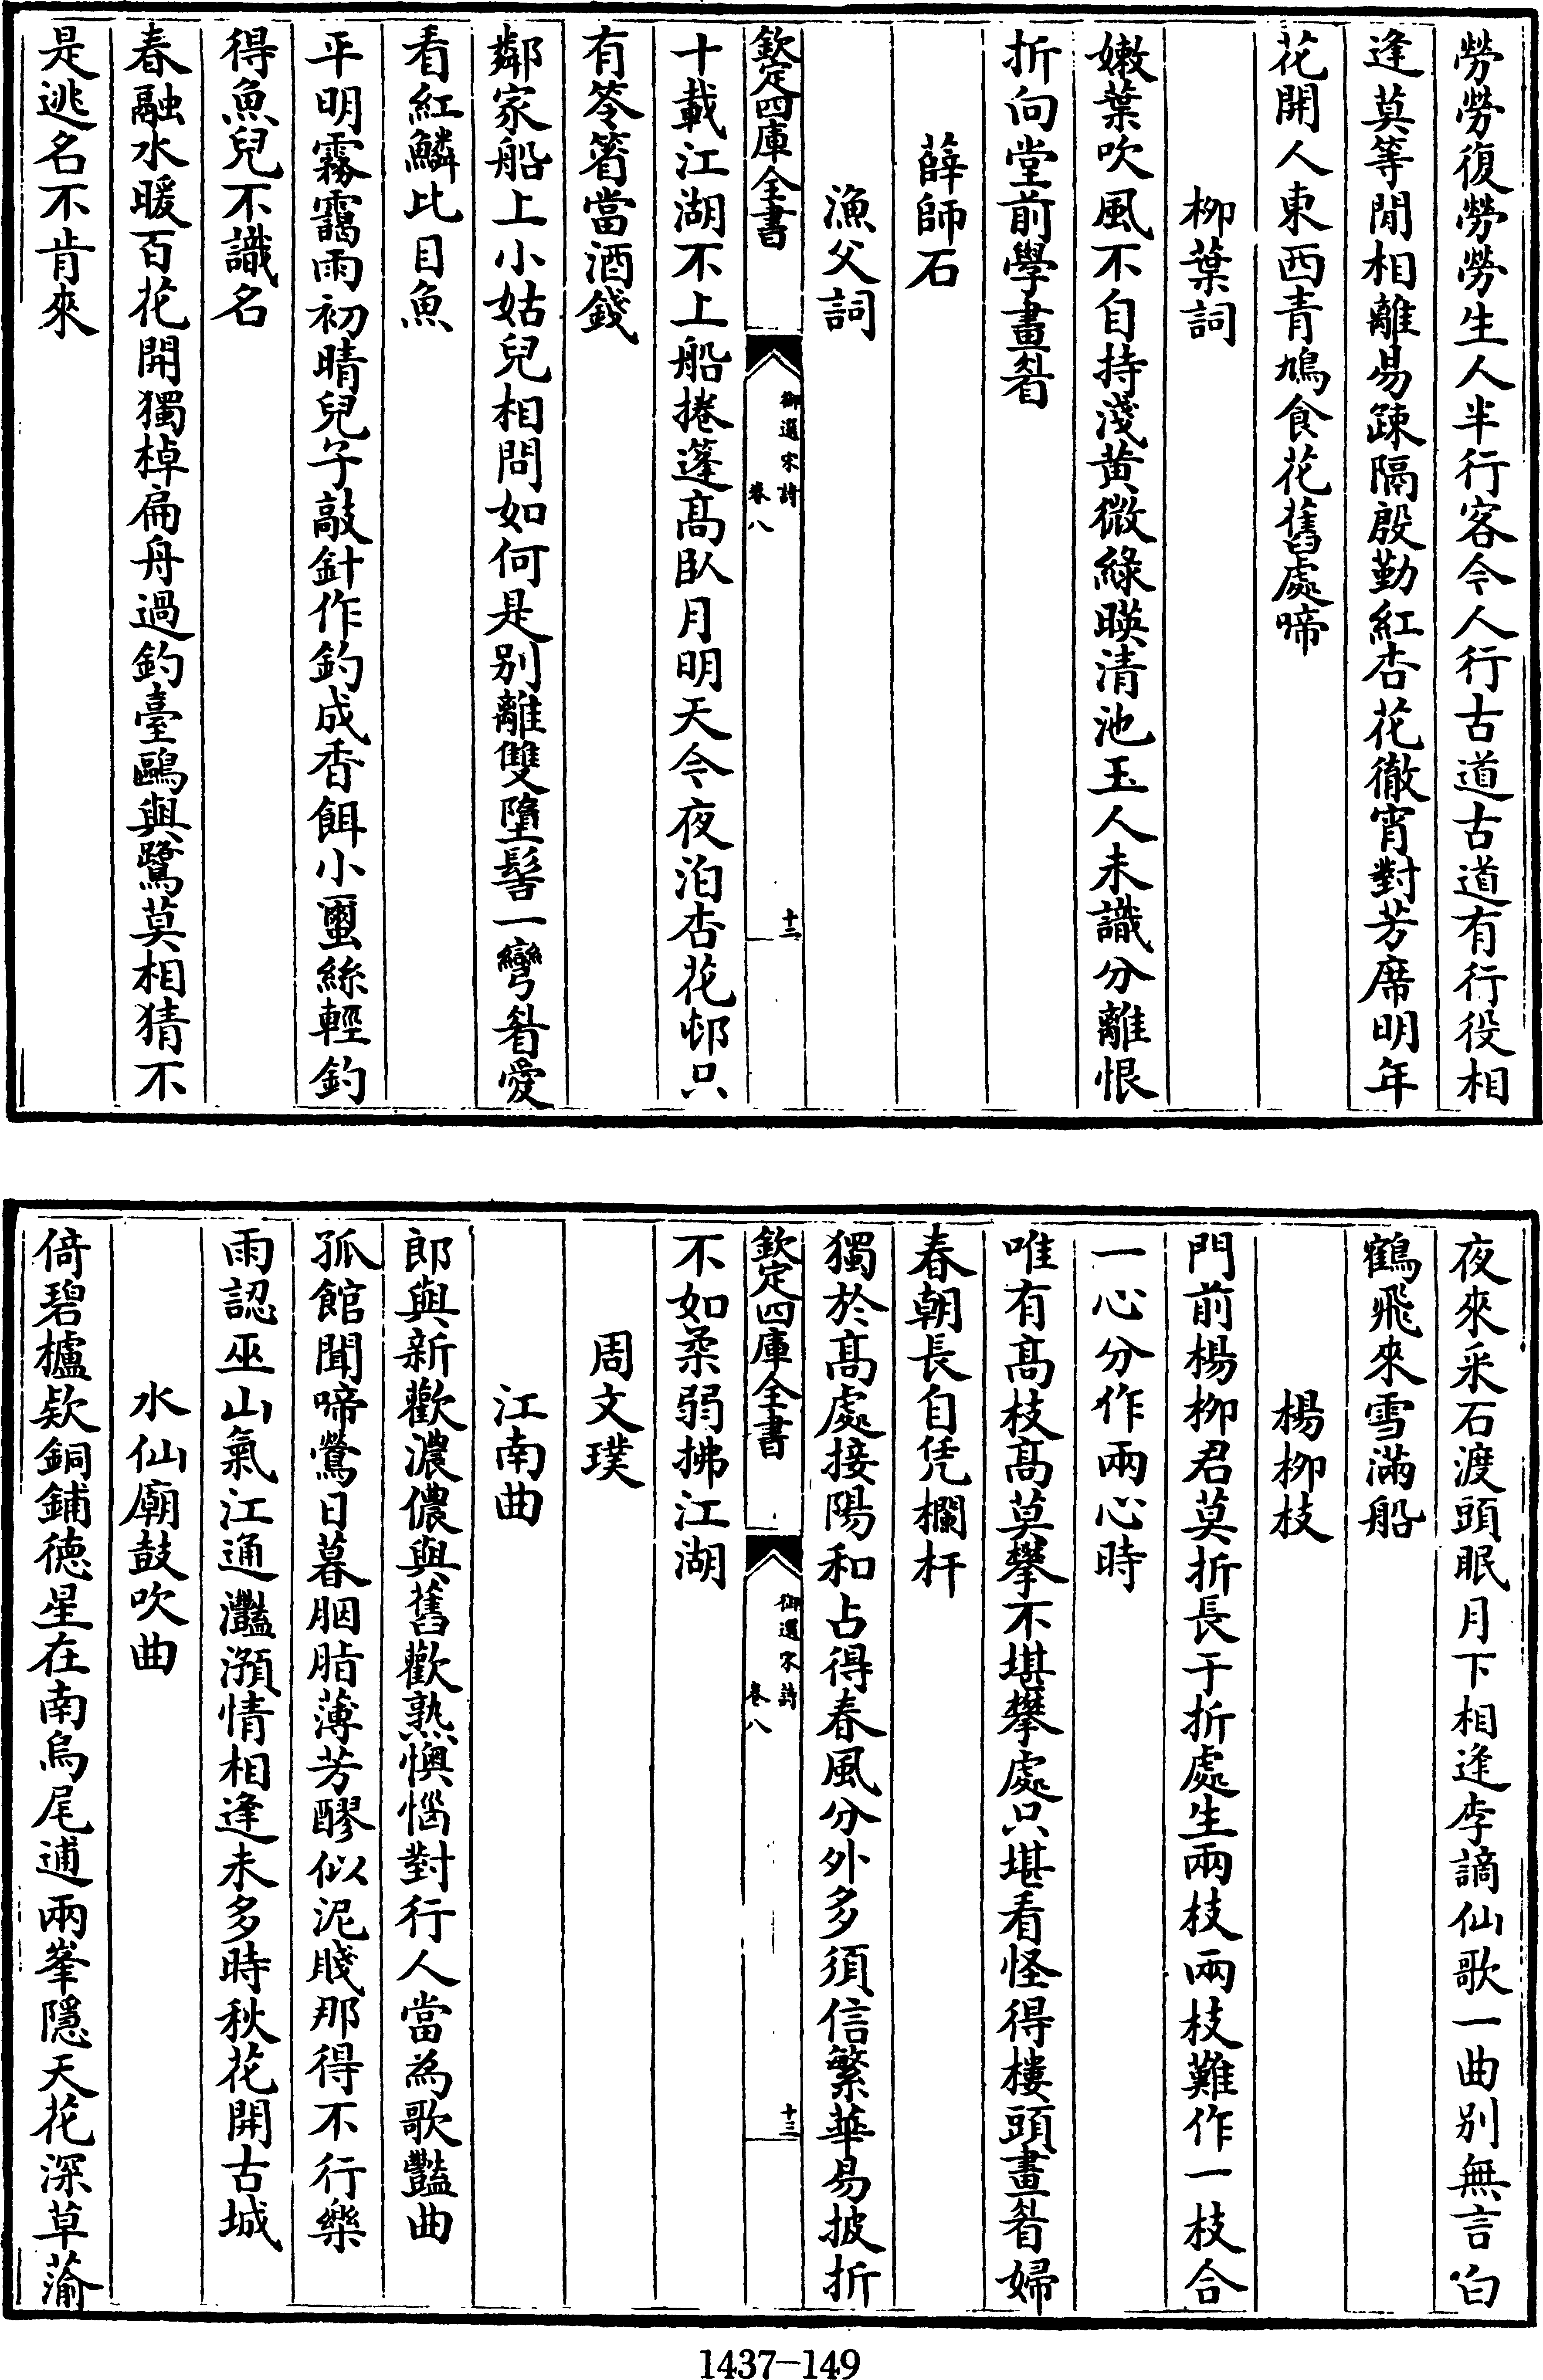 勞勞復勞勞生人半行客今人行古道古道有行役相
逢莫等閒相離易踈隔殷勤紅杏花徹宵對芳席明年
花開人東西青鳩食花舊處啼
柳葉詞
嫩葉吹風不自持淺黄微綠暎清池玉人未識分離恨
折向堂前學畫眉
薛師石
漁父詞
欽定四庫全書
御選宋詩
卷八
十二
十載江湖不上船捲篷髙臥月明天今夜泊杏花邨只
有笭箵當酒錢
鄰家船上小姑兒相問如何是别離雙墮髻一彎眉愛
看紅鱗比目魚
平明霧靄雨初晴兒子敲針作釣成香餌小蠒絲輕釣
得魚兒不識名
春融水暖百花開獨棹扁舟過釣臺鷗與鷺莫相猜不
是逃名不肯來
夜來采石渡頭眠月下相逢李謫仙歌一曲别無言白
鶴飛來雪滿船
楊柳枝
門前楊柳君莫折長于折處生兩枝兩枝難作一枝合
一心分作兩心時
唯有髙枝髙莫攀不堪攀處只堪看怪得樓頭畫眉婦
春朝長自凭欄杆
獨於髙處接陽和占得春風分外多須信繁華易披折
欽定四庫全書
御選宋詩
卷八
十三
不如柔弱拂江湖
周文璞
江南曲
郎與新歡濃儂與舊歡熟懊惱對行人當為歌豔曲
孤館聞啼鶯日暮胭脂薄芳醪似泥賤那得不行樂
雨認巫山氣江通灩澦情相逢未多時秋花開古城
水仙廟鼓吹曲
倚碧櫨欵銅鋪德星在南烏尾逋兩峯隱天花深草蕍
1437-149